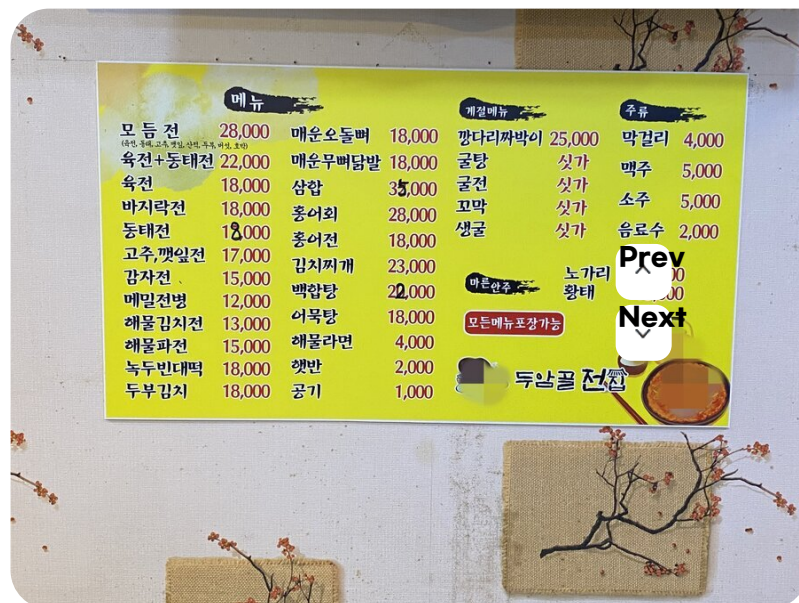 메뉴
모듬전 28,000
(육전, 동태, 고추, 깻잎, 산적, 두부, 버섯, 호박)
육전+동태전 22,000
육전 18,000
바지락전 18,000
동태전 18,000
고추,깻잎전 17,000
감자전 15,000
메밀전병 12,000
해물김치전 13,000
해물파전 15,000
녹두빈대떡 18,000
두부김치 18,000
매운오돌뼈 18,000
매운무뼈닭발 18,000
삼합 35,000
홍어회 28,000
홍어전 18,000
김치찌개 23,000
백합탕 22,000
어묵탕 18,000
해물라면 4,000
햇반 2,000
공기 1,000
계절메뉴
깡다리짜박이 25,000
굴탕 싯가
굴전 싯가
꼬막 싯가
생굴 싯가
주류
막걸리 4,000
맥주 5,000
소주 5,000
음료수 2,000
마른안주
노가리
황태
모든메뉴포장가능
두암골 전집
Prev
Next